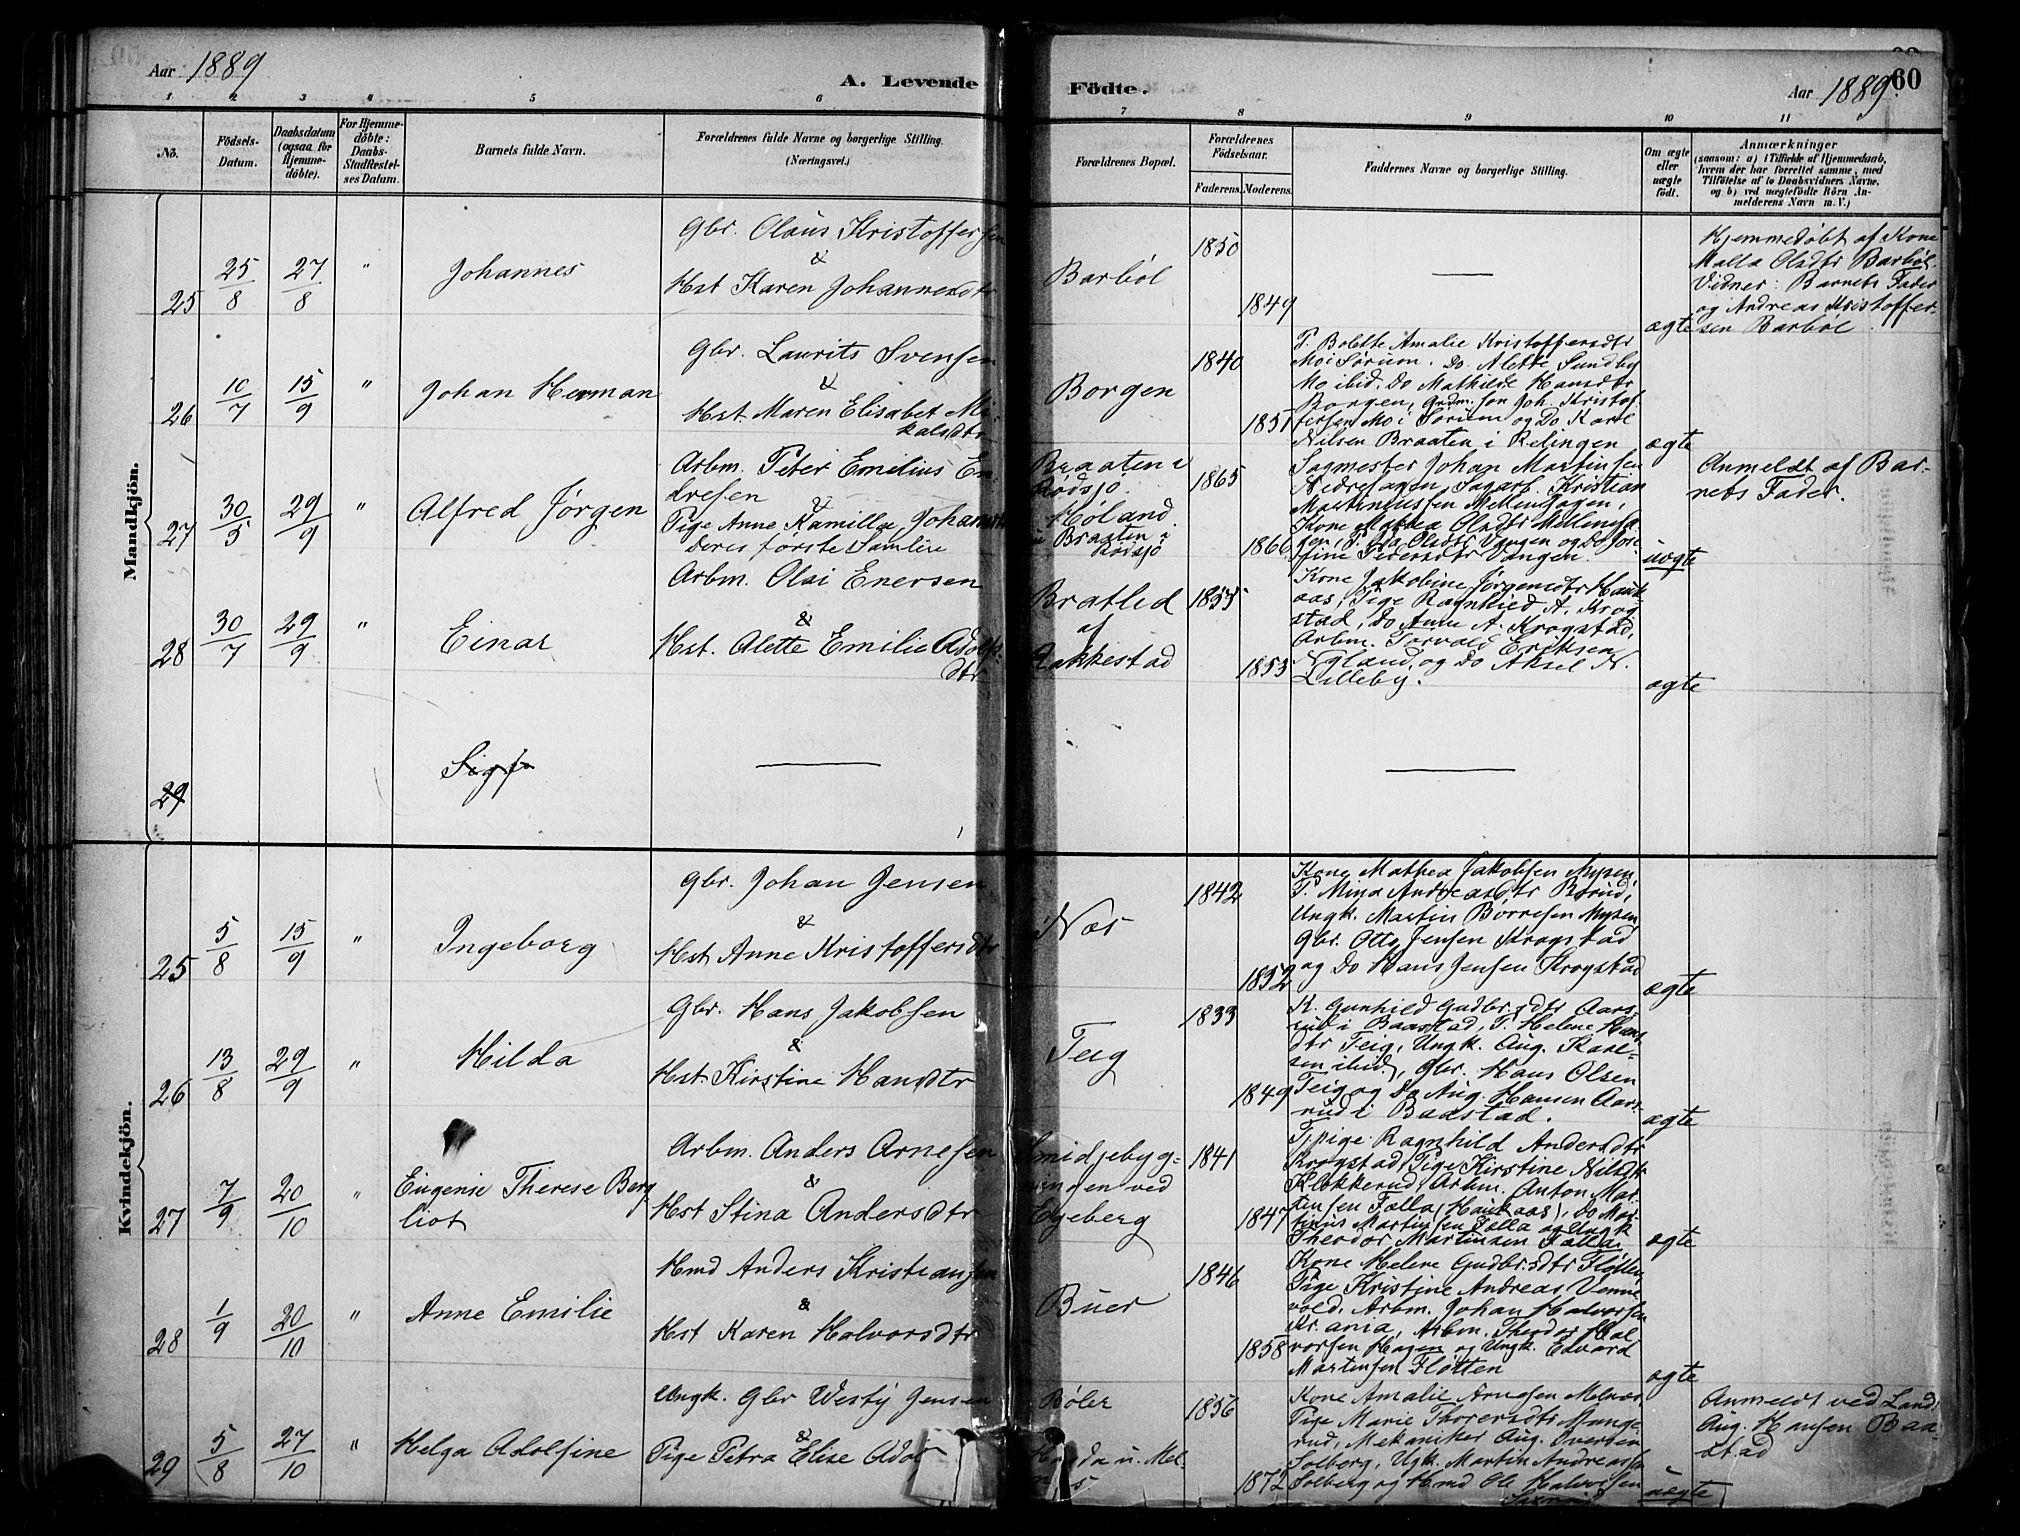 Aar 1889
A. Levende
Födte.
Aar 1889
60
1 2 3 " 5 6 7 8 9 10 11
No.
Födsels-Datum.
Daabsdatum (ogsaa for Hjemme-döbte).
For Hjemme-döbte: Daabs-Stadfæstel-ses Datum.
Barnets fulde Navn.
Forældrenes fulde Navne og borgerlige Stilling. (Næringsvei.)
Forældrenes Bopæl.
Forældrenes Födselsaar.
Faderens. Moderens.
Faddernes Navne og borgerlige Stilling.
Om ægte eller uægte født.
Anmærkninger
(saasom: a) i Tilfælde af Hjemmedaab,
hvem der har forrettet samme, med
Tilföielse af to Daabsvidners Navne,
og b) ved uægtefödte Börn An-
melderens Navn m. V.)
Mandkjön.
25
25/8
27/8
"
Johannes
Gbr. Olaus Kristoffersen
&
Hst Karen Johannesdtr
Barbøl
1850
1849
—
ægte
Hjemmedøbt af Kone
Malla Olsdtr Barbøl.
Vidner: Barnets Fader
og Andreas Kristoffer-
sen Barbøl.
26
10/7
15/9
"
Johan Herman
Gbr. Laurits Svensen
&
Hst. Maren Elisabet Mi-
kalsdtr
Borgen
1840
1851
P. Bolette Amalie Kristoffersdtr
Mo i Sørum. Do Alette Sundby
Mo ibid. Do Mathilde Hansdtr
Borgen, Grdm.søn Joh. Kristof-
fersen Mo i Sørum og Do Karl
Nilsen Braaten i Relingen
ægte
27
30/5
29/9
"
Alfred Jørgen
Arbm. Peter Emilius En-
dresen
&
Pige Anne Kamilla Johansdtr
Deres første Samleie
Braaten i
Rødsjø
Høland.
Braaten i
Rødsjø
1865
1866
Sagmester Johan Martinsen
Nedresagen, Sagarb. Kristian
Martiniussen Mellemsagen,
Kone Mathea Olsdtr Mellemsa-
gen, P. Olsdtr Vangen og Do Jose-
fine Pedersdtr Vangen.
uægte
Anmeldt af Bar-
nets Fader.
28
30/7
29/9
"
Einar
Arbm. Olai Enersen
&
Hst. Alette Emilie Adolf-
dtr
Bratlid
af
Rakkestad
1855
1853
Kone Jakobine Jørgensdtr Hauk-
aas, Pige Ragnhild A. Krog-
stad, Do Anne A. Krogstad,
Arbm. Torvald Eriksen
Nyland, og Do Aksel N.
Lilleby.
ægte
29
—
—
Kvindekjön.
25
5/8
15/9
"
Ingeborg
Gbr. Johan Jensen
&
Hst Anne Kristoffersdtr
Næs
1842
1852
Kone Mathea Jakobsen Mysen,
P. Mina Andreasdtr Berud,
Ungk. Martin Børresen Mysen
Gbr. Otto Jensen Krogstad
og Do Hans Jensen Krogstad
ægte
26
13/8
29/9
"
Hilda
Gbr. Hans Jakobsen
&
Hst. Kirstine Hansdtr
Teig
1833
1849
K. Gunhild Gudbr.dtr Aars-
rud i Baastad, P. Helene Hans-
dtr Teig, Ungk. Aug. Karl-
sen ibid, Gbr. Hans Olsen
Teig og Do Aug. Hansen Aars-
rud i Baastad.
ægte
27
7/9
20/10
"
Eugenie Therese Berg
liot
Arbm. Anders Arnesen
&
Hst Stina Andersdtr
Smidjebyg-
ningen ved
Egeberg
1841
1847
Tjpige Ragnhild Andersdtr
Krogstad, Pige Kirstine Nilsdtr
Klokkerud, Arbm. Anton Mar-
tinsen Falla (Haukaas), Do Mar-
tinius Martinsen Falla og Ungk
Theodor Martinsen Falla.
ægte
28
1/9
20/10
"
Anne Emilie
Hmd Anders Kristiansen
&
Hst Karen Halvorsdtr
Buer
1846
1858
Kone Helene Gudbr.dtr Fløtten
Pige Kristine Andreas. Venne-
vold. Arbm. Johan Halvorsen
Kr.ania, Arbm. Theodor Hal-
vorsen Hagen og Ungk. Edvard
Martinsen Fløtten
ægte
29
5/8
27/10
"
Helga Adolfine
Ungk. Gbr Westy Jensen
&
Pige Petra Elise Adol
Bøler
1856
1872
Kone Amalie Arnesen Melnæs
Pige Marie Thorersdtr Mange-
rud, Mekaniker Aug. Iversen
Solberg, Ugk. Martin Andreassen
Solberg og Hmd Ole Halvorsen
uægte
Anmeldt ved Landh.
Aug. Hansen Baa-
stad